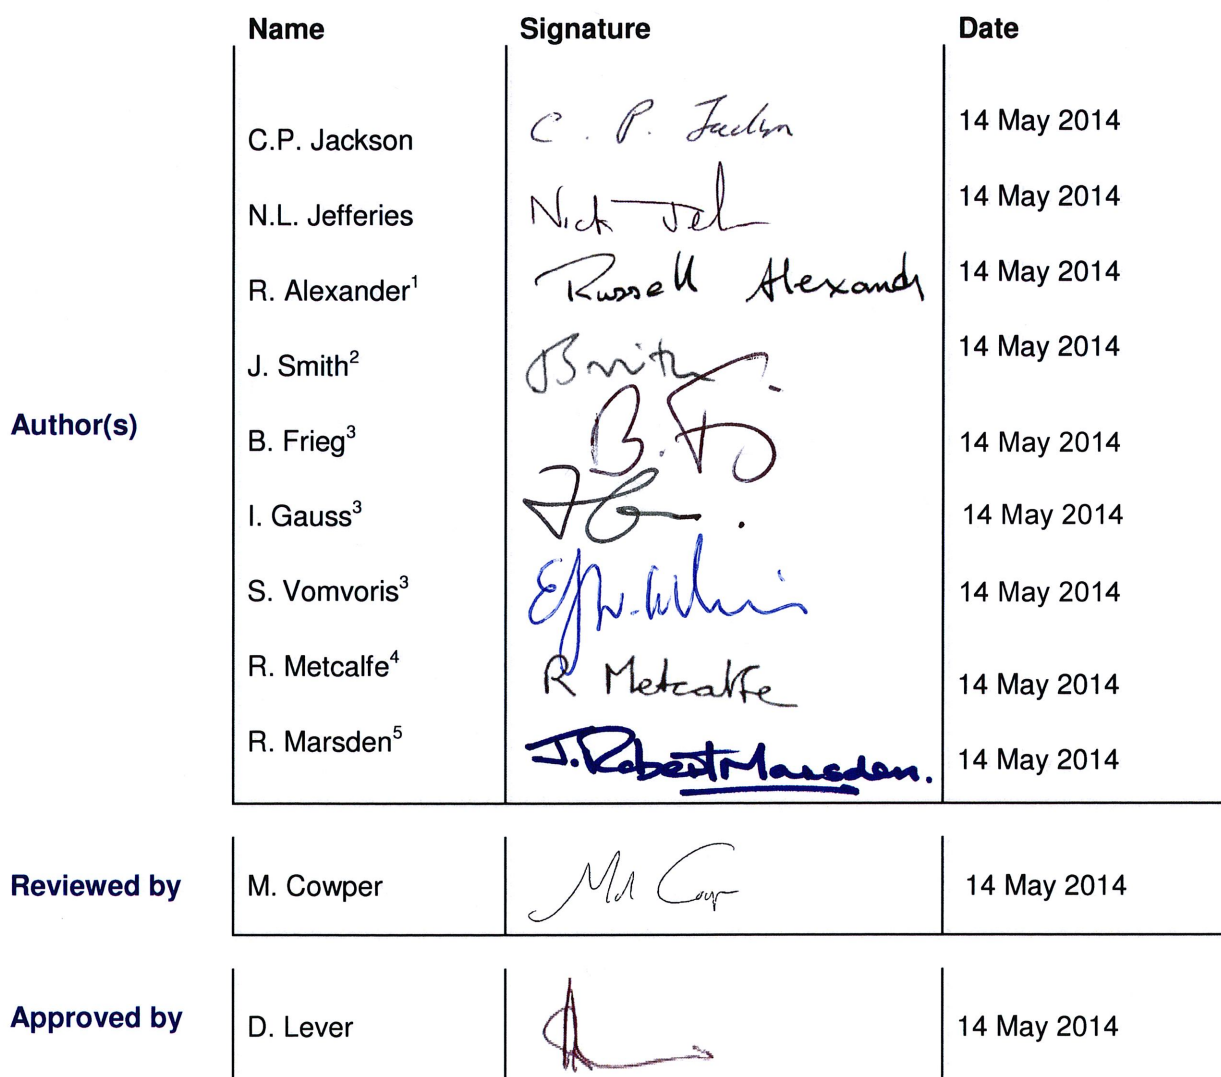 Name Signature Date
C.P. Jackson C. P. Jackson 14 May 2014
N.L. Jefferies Nick 14 May 2014
R. Alexander¹ Russell Alexander 14 May 2014
J. Smith² Smith 14 May 2014
Author(s)
B. Frieg³ B. 14 May 2014
I. Gauss³ 14 May 2014
S. Vomvoris³ 14 May 2014
R. Metcalfe⁴ R Metcalfe 14 May 2014
R. Marsden⁵ J. Robert Marsden. 14 May 2014
Reviewed by M. Cowper 14 May 2014
Approved by D. Lever 14 May 2014